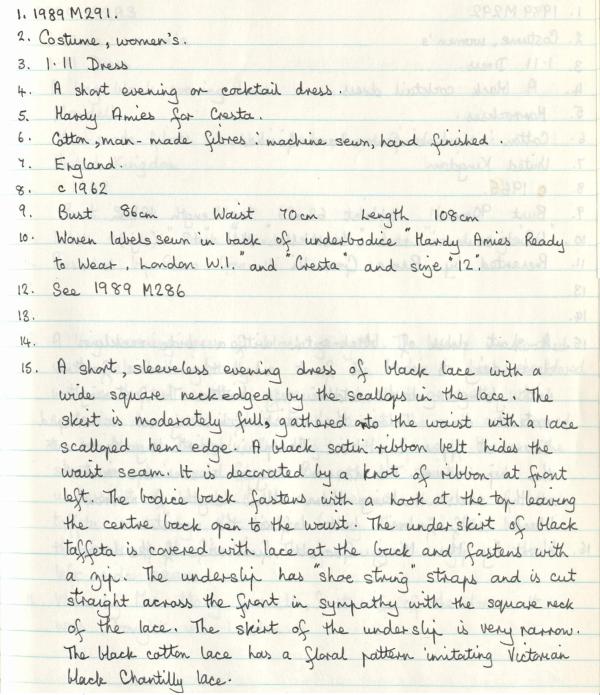 1. 1989 M291.
2. Costume, women's.
3. 1.11 Dress
4. A short evening or cocktail dress.
5. Hardy Amies for Cresta.
6. Cotton, man-made fibres: machine sewn, hand finished.
7. England.
8. c 1962
9. Bust 86cm Waist 70cm Length 108cm
10. Woven labels sewn in back of underbodice "Hardy Amies Ready
to Wear, London W.1." and "Cresta" and size "12".
12. See 1989 M286
13.
14.
15. A short, sleeveless evening dress of black lace with a
wide square neck edged by the scallops in the lace. The
skirt is moderately full, gathered onto the waist with a lace
scalloped hem edge. A black satin ribbon belt hides the
waist seam. It is decorated by a knot of ribbon at front
left. The bodice back fastens with a hook at the top leaving
the centre back open to the waist. The underskirt of black
taffeta is covered with lace at the back and fastens with
a zip. The underslip has "shoe string" straps and is cut
straight across the front in sympathy with the square neck
of the lace. The skirt of the underslip is very narrow.
The black cotton lace has a floral pattern imitating Victorian
black Chantilly lace.